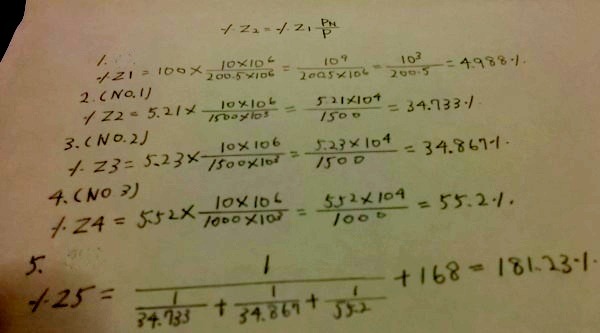 % Z2 = % Z1 PN/P
1.
% Z1 = 100 × 10×10⁶/200.5×10⁶ = 10⁹/200.5×10⁶ = 10³/200.5 = 4.988 %
2. (NO.1)
% Z2 = 5.21 × 10×10⁶/1500×10³ = 5.21×10⁴/1500 = 34.733 %
3. (NO.2)
% Z3 = 5.23 × 10×10⁶/1500×10³ = 5.23×10⁴/1500 = 34.867 %
4. (NO 3)
% Z4 = 5.52 × 10×10⁶/1000×10³ = 5.52×10⁴/1000 = 55.2 %
5.
% Z5 = 1/(1/34.733 + 1/34.867 + 1/55.2) + 168 = 181.23 %